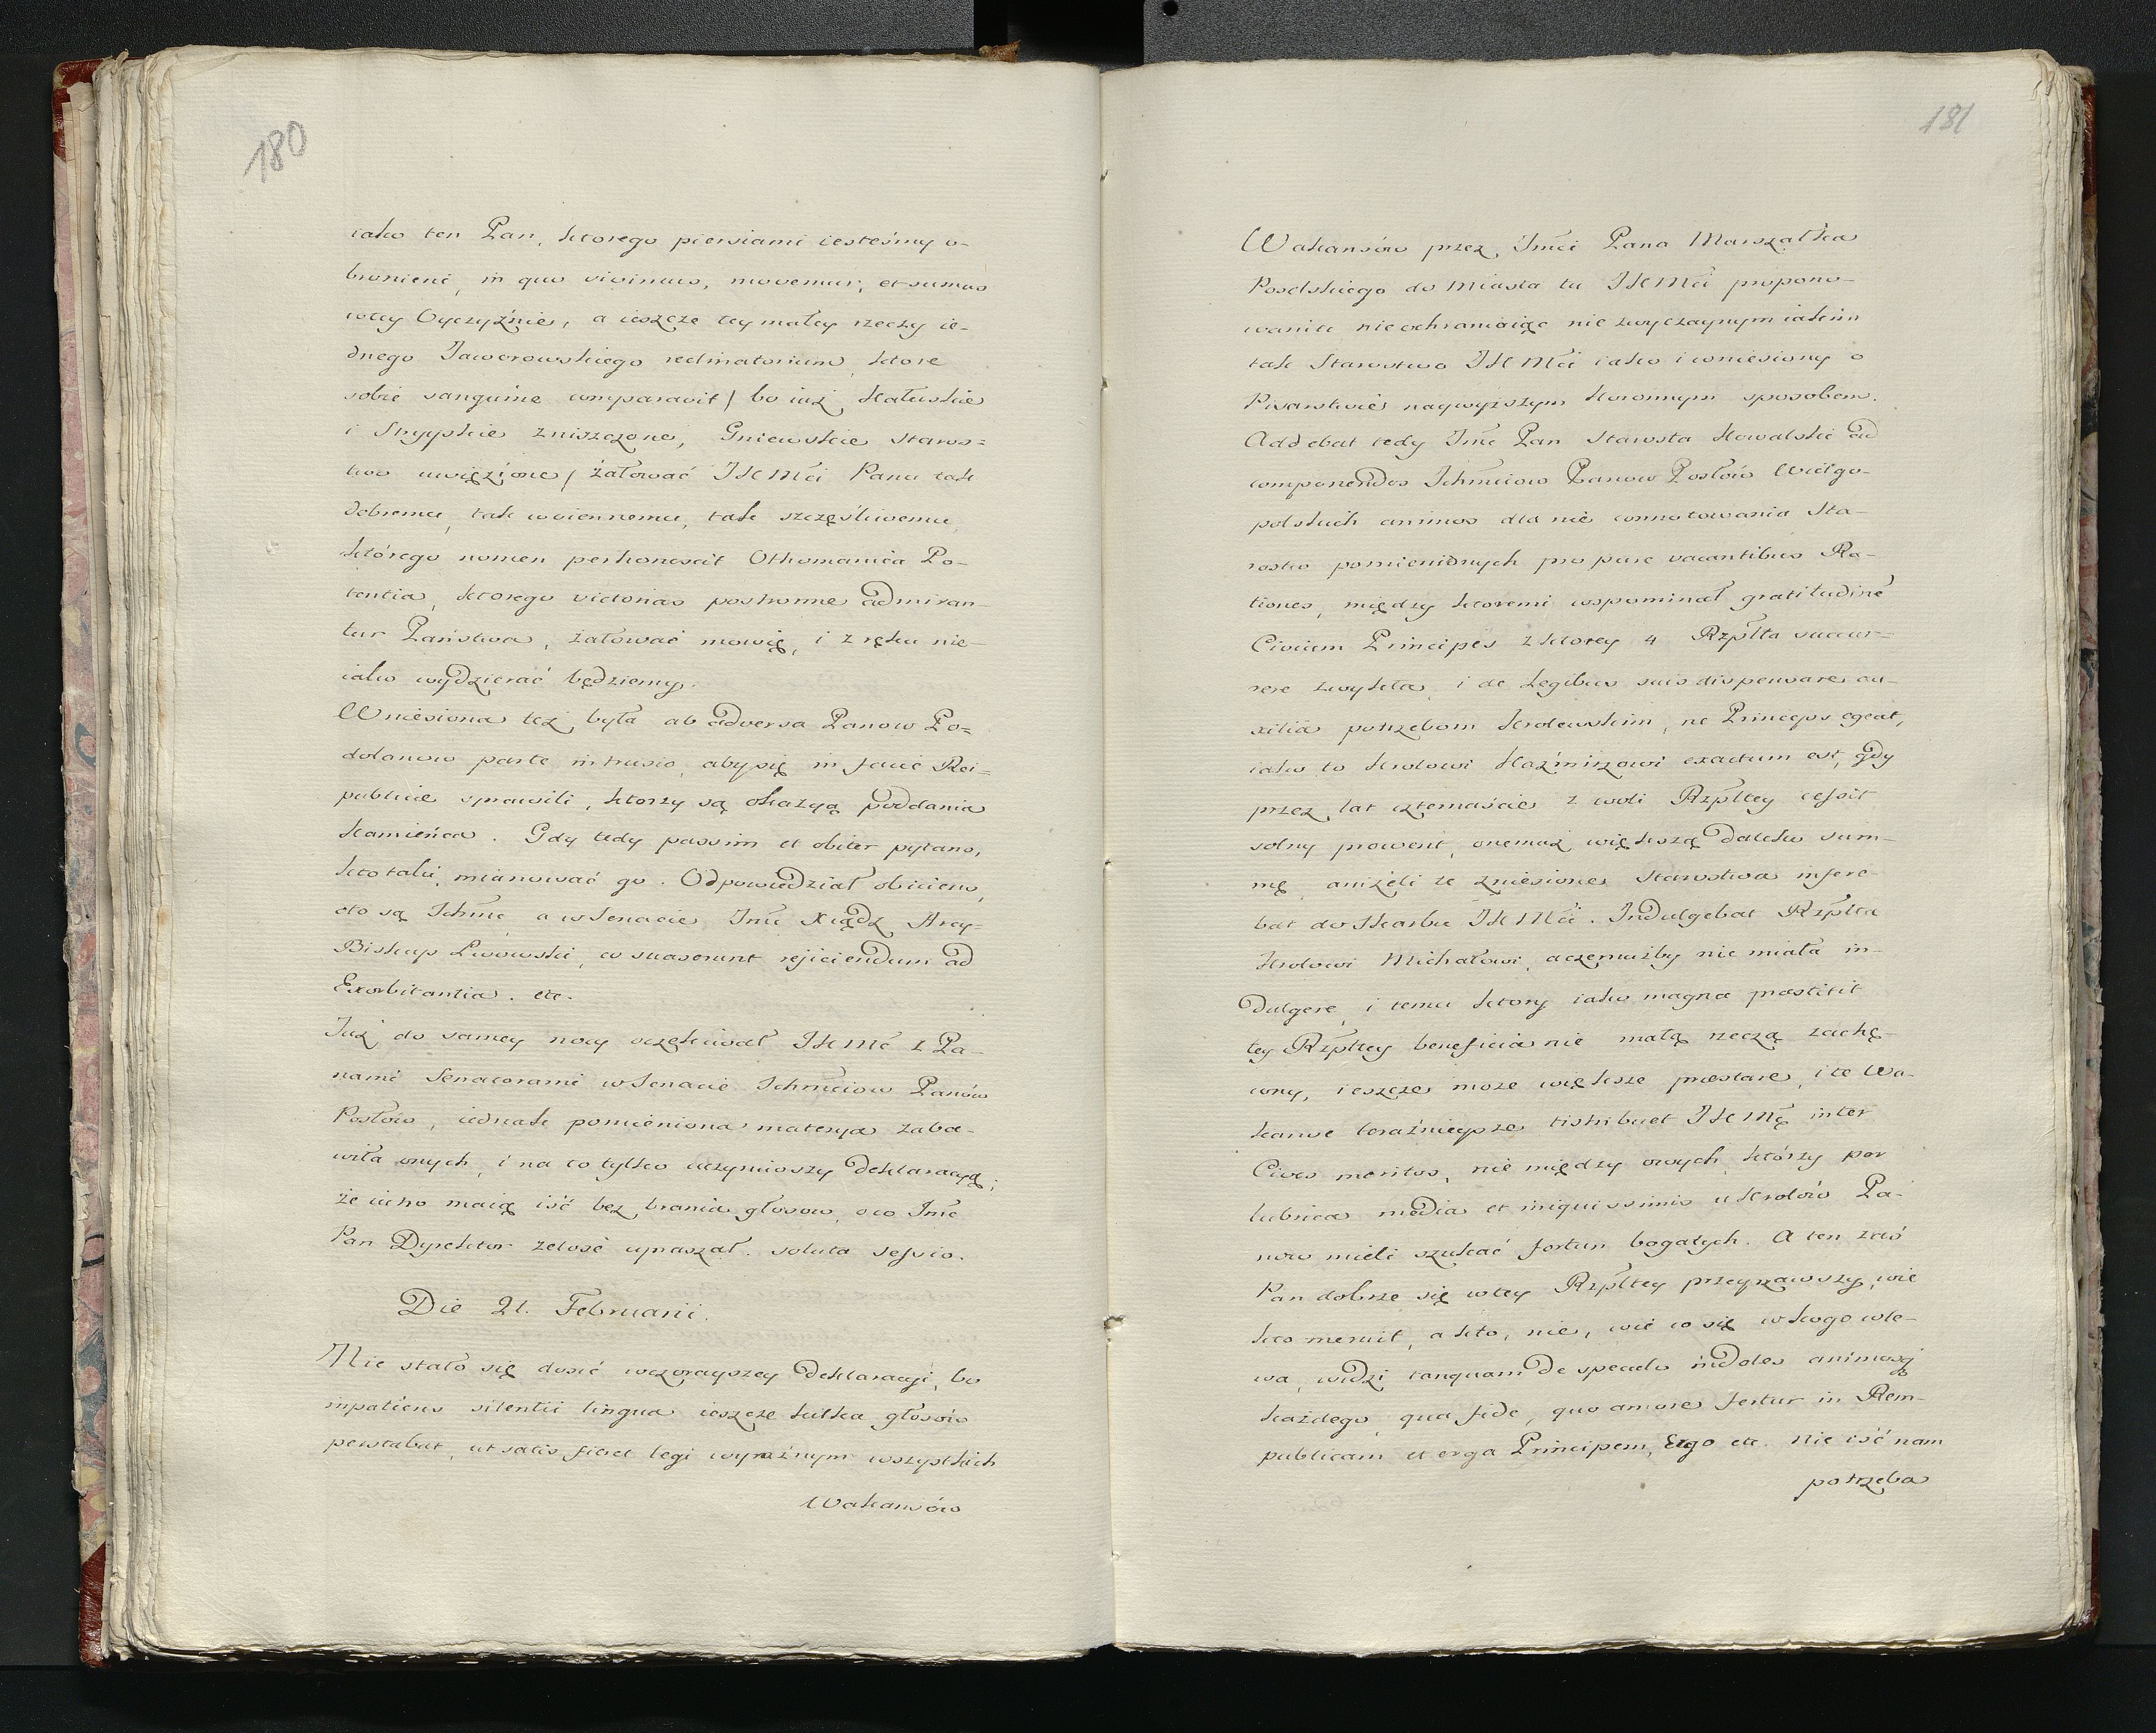 180
iako ten Pan, ktorego piersiami iesteśmy o-
bronieni, in quo vivimus, movemur, et sumus
w tey Oyczyźnie, a ieszcze tey małey rzeczy ie-
dnego Jaworowskiego reclinatorium, ktore
sobie sanguine comparavit / bo iuż Kałuskie
i Stryyskie zniszczone, Gniewskie Staros=
two uwięzione / żałować JKMci Panu tak
dobremu, tak woiennemu, tak szczęśliwemu,
którego nomen perhorescit Othomanica Po-
tentia, ktorego victorias postronne admiran-
tur Państwa, żałować mowię, i z ręku nie-
iako wydzierać będziemy.
Wniesiona też była ab adversa Panow Po=
dolanow parte intrusio, aby się in facie Rei=
publicæ sprawili, ktorzy są okazyą poddania
Kamieńca. Gdy tedy passim et obiter pytano,
kto taki, mianować go. Odpowiedział obiciens,
oto są Ichmć, a w Senacie Jmć Xiądz Arcy=
Biskup Lwowski, co suaserunt rejiciendum ad
Exorbitantia. etc.
Już do samey nocy oczekiwał JKMć z Pa-
nami Senatorami w Senacie Ichmciow Panów
Posłów, iednak pomieniona materya zaba-
wiła onych, i na to tylko uczyniwszy deklaracyą,
że iutro maią iść bez brania głosow, o co Jmć
Pan Dyrektor zelose upraszał. soluta sessio.
Die 21. Februarii.
Nie stało się dosić wczorayszey deklaracyi, bo
impatiens silentii lingua ieszcze kilka głosów
perstabat, ut satis fieret legi wyraźnym wszystkich
Wakansów
181
Wakansów przez Jmci Pana Marszałka
Poselskiego do Miasta tu JKMci propono-
wanie nieochraniaiąc nie zwyczaynym iakim
tak Starostwo JKMci iako i wniesiony o
Pisarstwie naywyższym Koronnym sposobem.
Addebat tedy Jmć Pan Starosta Kowalski ad
componendos Ichmciow Panow Posłów Wielgo-
polskich animos dla nie connotowania Sta-
rostw pomienionych pro parte vacantibus Ra-
tiones, między ktoremi wspominał gratitudinē
Civium Principes z ktorey 4 Rzplta succur-
rere zwykła, i de Legibus suis dispensare au-
xilia potrzebom Krolewskim, ne Princeps egeat,
iako to Krolowi Kazimirzowi exactum est, gdy
przez lat czternaście z woli Rzpltey cessit
solny prowent, onemuż większą daleko sum-
mę aniżeli te zniesione Starostwa infere-
bat do Skarbu JKMci. Indulgebat Rzplta
Krolowi Michałowi, a czemużby nie miała in-
dulgere, i temu ktory iako magna præstitit
tey Rzpltey beneficia nie małą rzeczą zachę-
cony, ieszcze może większe præstare, i te Wa-
kanse teraźnieysze tistribuet JKMć inter
Cives meritos, nie między owych, którzy per
lubrica media et iniquissimis u Krolów Pa-
now mieli szukać fortun bogatych. A ten zaś
Pan dobrze się w tey Rzpltey przeyzrawszy, wie
kto meruit, a kto, nie, wie co się w kogo wle-
wa, widzi tanquam de speculo indoles animusq
każdego, qua fide, quo amore fertur in Rem-
publicam et erga Principem, Ergo etc. Nie iść nam
potrzeba